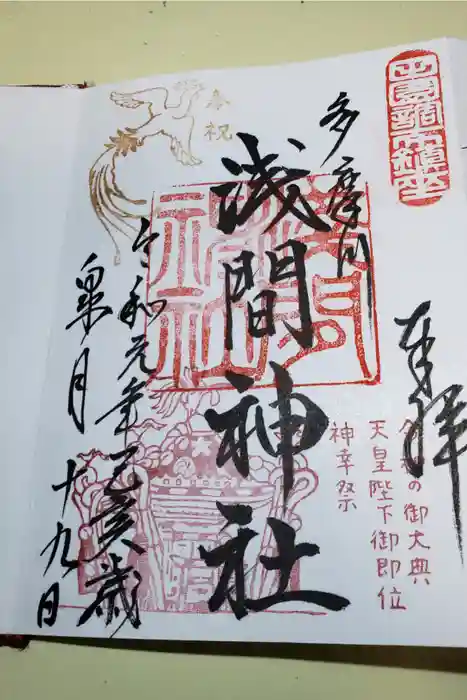 田園調布鎮座
奉拝
令和の御大典
天皇陛下御即位
神幸祭
多摩川
浅間神社
奉祝
令和元年己亥歳
皐月 十九日